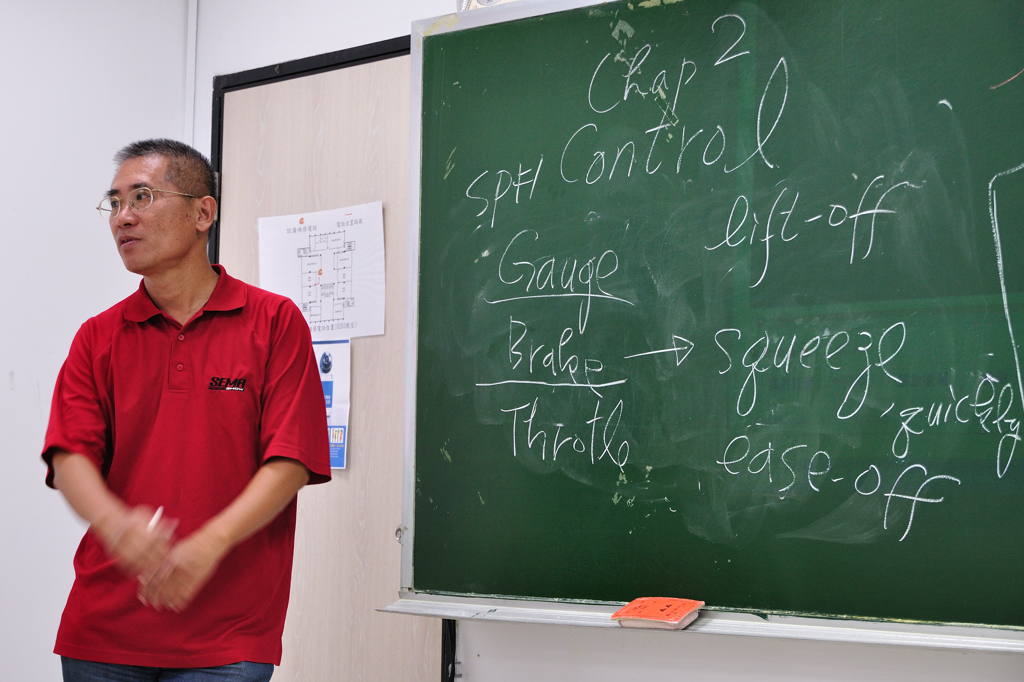 Chap 2
Control
SPFI
lift-off
Gauge
Brake → squeeze
, quickly
Throtle
ease-off
SEMA